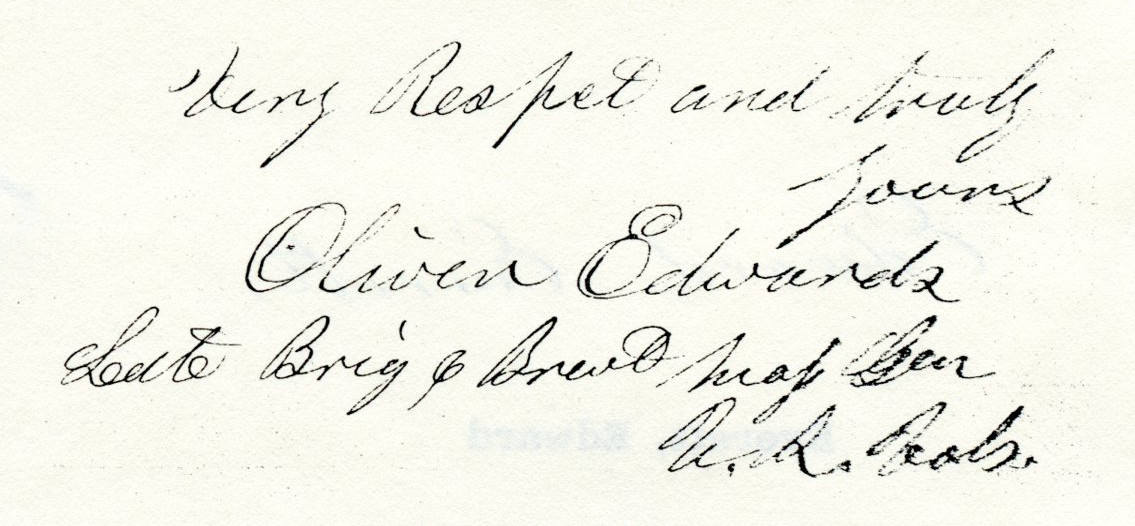 Very Respet and truly
Yours
Oliver Edwards
Late Brig & Brevt Maj Gen
U.S. Vols.